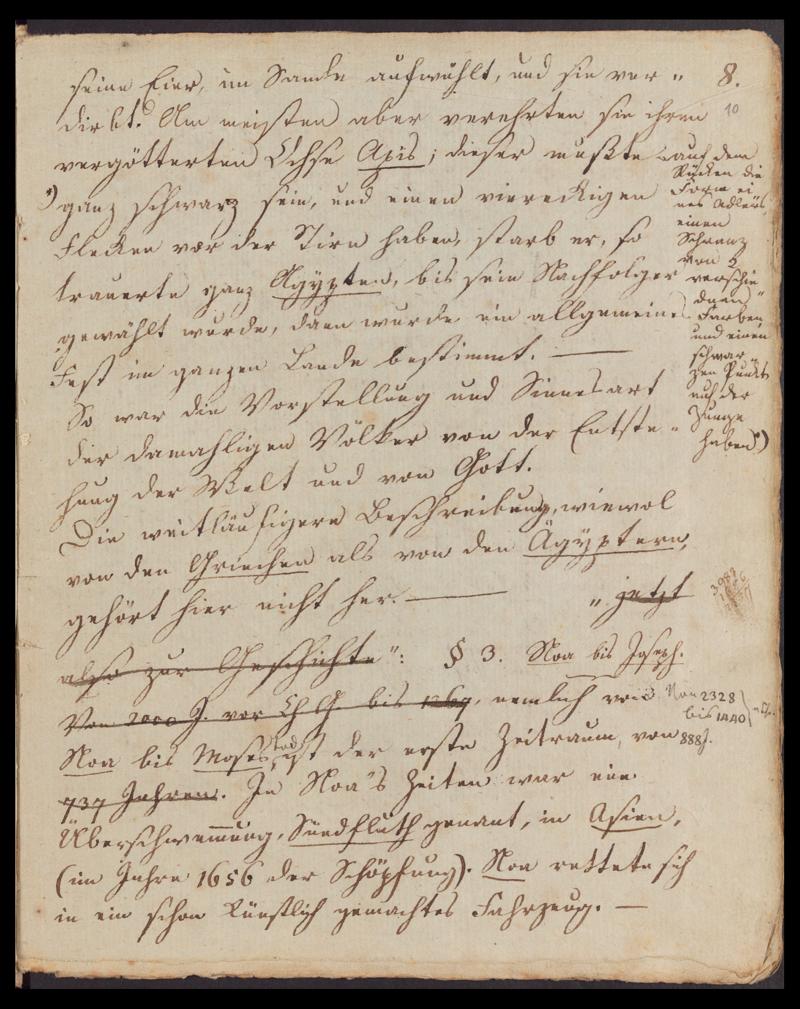 8.
10
seine Eier, im Sande aufwühlt, und sie ver„
dirbt. Am meisten aber verehrten sie ihren
vergötterten Ochse Apis; dieser mußte
*) ganz schwarz sein, und einen viereckigen
Flecken vor der Stirn haben, starb er, so
trauerte ganz Ägypten, bis sein Nachfolger
gewählt wurde, dann wurde ein allgemeines
Fest im ganzen Lande bestimmt. —
So war die Vorstellung und Sinnesart
der damahligen Völker von der Entste„
hung der Welt und von Gott.
Die weitläufigere Beschreibung, wiewol
von den Griechen als von den Ägyptern,
gehört hier nicht her. — „jetzt
also zur Geschichte": § 3. Noa bis Joseph.
Von 2000 J. vor Ch. G. bis 1267, nemlich von
Noa bis Moses Tod, ist der erste Zeitraum, von
737 Jahren. In Noa's Zeiten war eine
Überschwemmung, Sündfluth genant, in Asien,
(im Jahre 1656 der Schöpfung). Noa rettete sich
in ein schon künstlich gemachtes Fahrzeug. —
auf dem
Rücken die
Form ei
nes Adlers,
einen
Schwanz
von 2
verschie
dnen
Farben,
und einen
schwar„
zen Punkt
auf der
Zunge
haben *)
Von 2328
bis 1440
888 J.